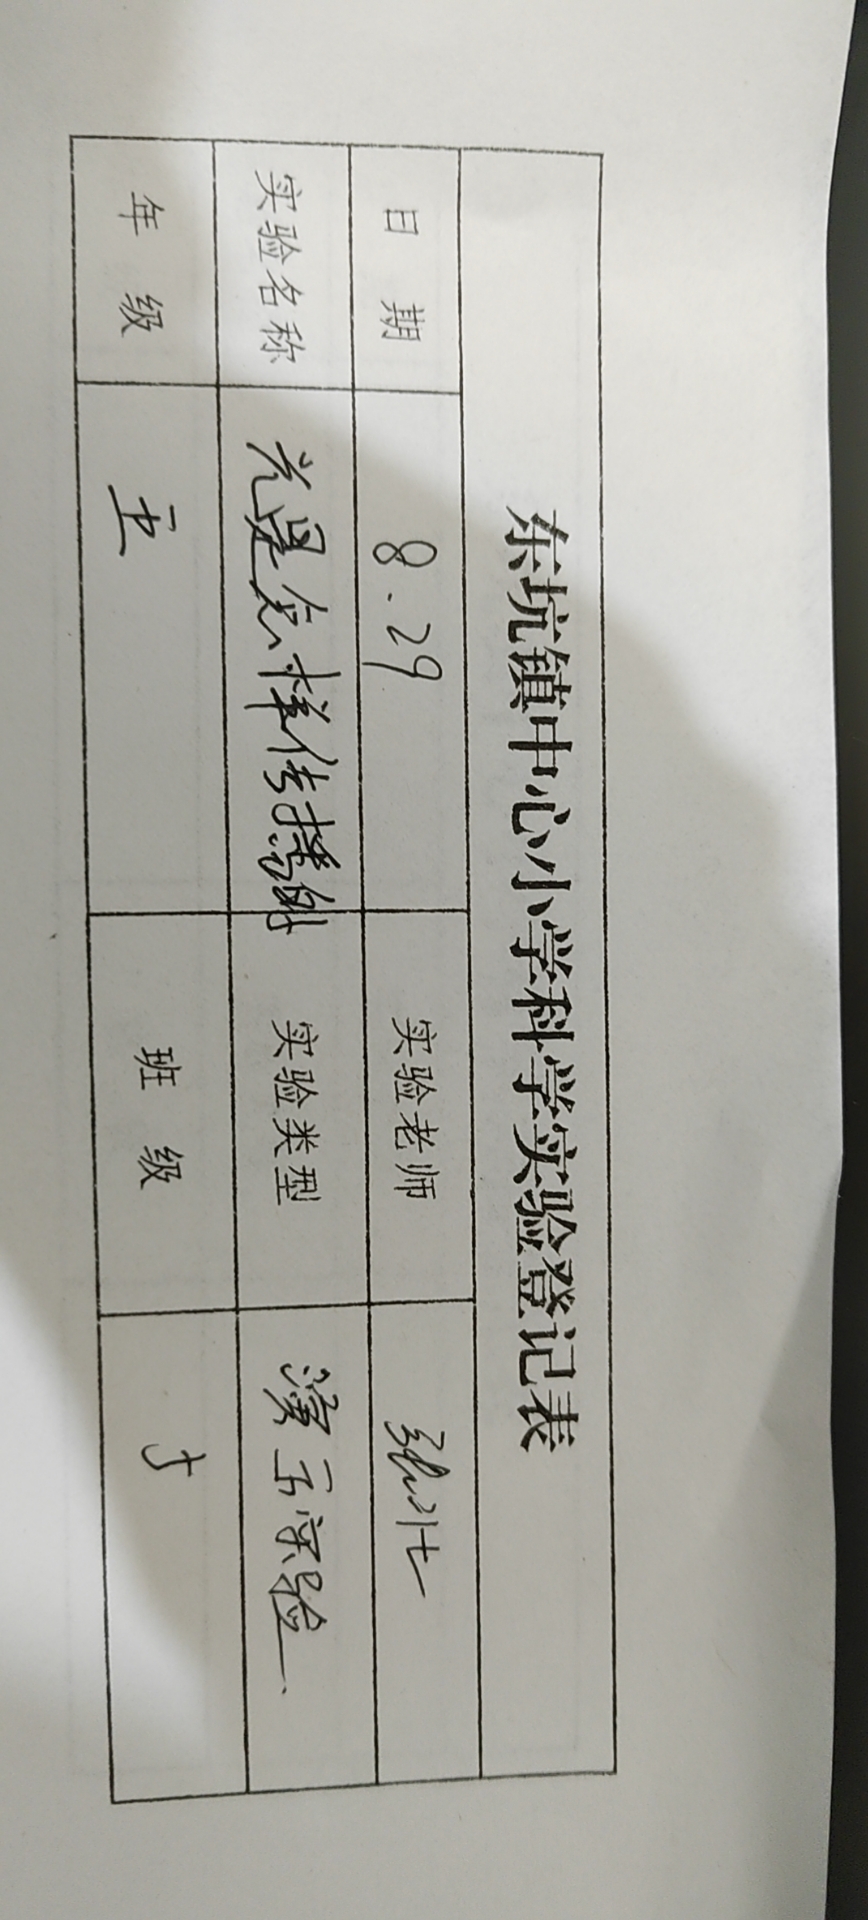 东坑镇中心小学科学实验登记表
日 期 8.29 实验老师 张壮
实验名称 光是怎样传播的 实验类型 演示实验
年 级 五 班 级